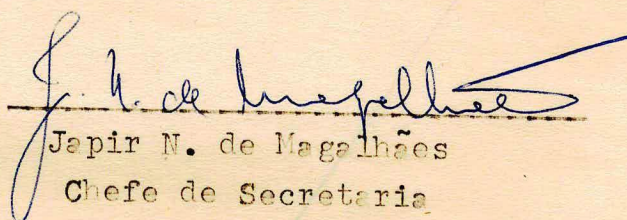 J. N. de Magalhães
Japir N. de Magalhães
Chefe de Secretaria